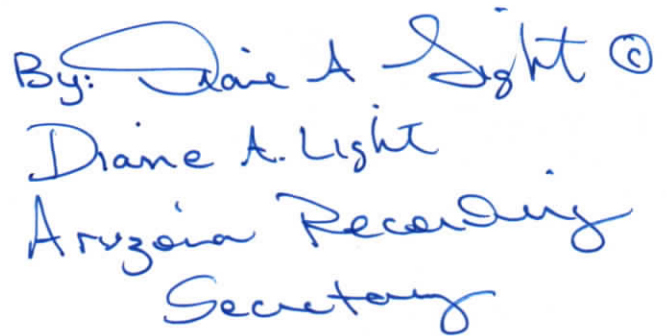 By: Diane A Light ©
Diane A. Light
Arizona Recording
Secretary